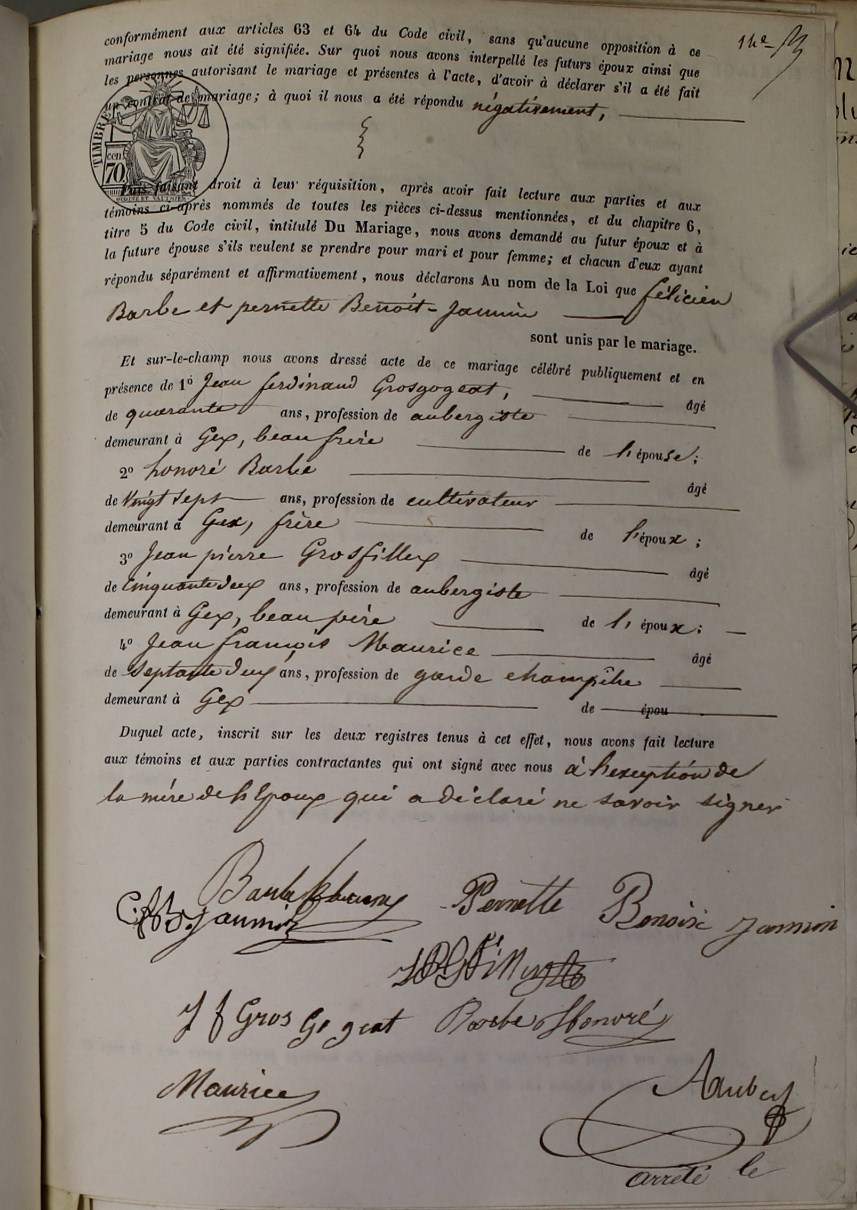 conformément aux articles 63 et 64 du Code civil, sans qu'aucune opposition à ce
mariage nous ait été signifiée. Sur quoi nous avons interpellé les futurs époux ainsi que
les personnes autorisant le mariage et présentes à l'acte, d'avoir à déclarer s'il a été fait
un contrat de mariage; à quoi il nous a été répondu négativement,
TIMBRE
cen. 70
Puis faisant droit à leur réquisition, après avoir fait lecture aux parties et aux
témoins ci-après nommés de toutes les pièces ci-dessus mentionnées, et du chapitre 6,
titre 5 du Code civil, intitulé Du Mariage, nous avons demandé au futur époux et à
la future épouse s'ils veulent se prendre pour mari et pour femme; et chacun d'eux ayant
répondu séparément et affirmativement, nous déclarons Au nom de la Loi que félicien
Barbe et pernette Benoit-Jannin
sont unis par le mariage.
Et sur-le-champ nous avons dressé acte de ce mariage célébré publiquement et en
présence de 1º Jean ferdinand Grosgogeat, âgé
de quarante ans, profession de aubergiste
demeurant à Gex, beau frère de l'épouse;
2º honoré Barbe âgé
de vingt sept ans, profession de cultivateur
demeurant à Gex, frère de l'époux;
3º Jean pierre Grosfillex âgé
de cinquante deux ans, profession de aubergiste
demeurant à Gex, beau père de l'époux;
4º Jean françois Maurice âgé
de septante deux ans, profession de garde champêtre
demeurant à Gex de épou
Duquel acte, inscrit sur les deux registres tenus à cet effet, nous avons fait lecture
aux témoins et aux parties contractantes qui ont signé avec nous à l'exception de
la mère de l'Epoux qui a déclaré ne savoir signer
Barbe Pernette Benoit Jannin
Jannin
J f Gros Gogeat Barbe Honoré
Maurice
arrêté le